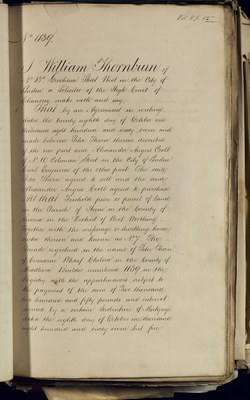 No 1139.
I William Thornburn of
No 13 Gresham Street West in the City of
London a Solicitor of the High Court of
Chancery make oath and say.
That by an Agreement in writing
dated the twenty eighth day of October one
thousand eight hundred and sixty seven and
made between Peter Thorn therein described
of the one part and Alexander Angus Croll
of No 10 Coleman Street in the City of London
Civil Engineer of the other part The said
Peter Thorn agreed to sell and the said
Alexander Angus Croll agreed to purchase
All that Freehold piece or parcel of Land
in the Parish of in the County of
Sussex in the District of West Worthing
together with the messuage or dwelling house
erected thereon and known as No 7 The
registered in the name of Peter Thorn
of Cremorne Wharf Chelsea in the County of
Middlesex Builder numbered 1139 in the
Registry with the appurtenances subject to
the payment of the sum of Two thousand
two hundred and fifty pounds and interest
secured by a certain Indenture of Mortgage
dated the eighth day of October one thousand
eight hundred and sixty seven but free